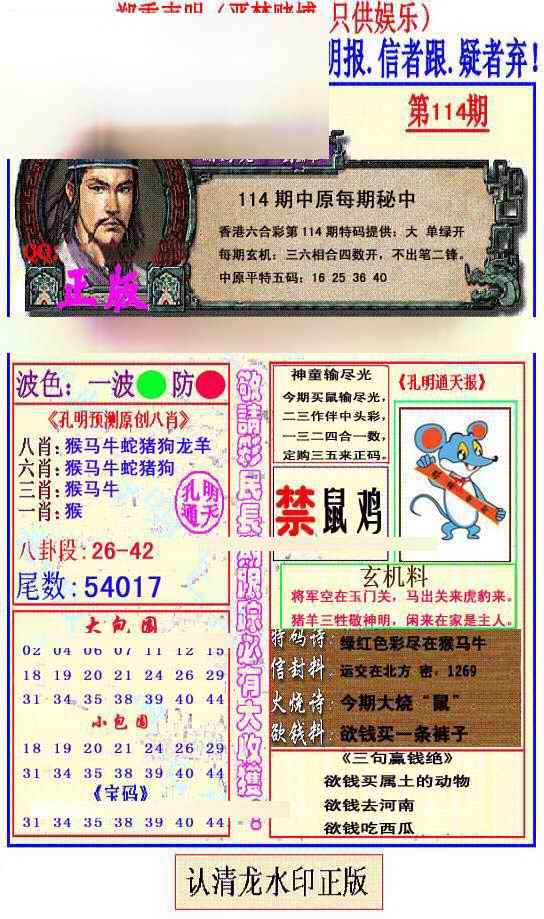 郑重声明（严禁赌博 只供娱乐）
明报.信者跟.疑者弃!
第114期
114 期中原每期秘中
香港六合彩第 114 期特码提供：大 单绿开
每期玄机：三六相合四数开，不出笔二锋。
中原平特五码：16 25 36 40
QQ
正版
波色：一波 防
《孔明预测原创八肖》
八肖:猴马牛蛇猪狗龙羊
六肖:猴马牛蛇猪狗
三肖:猴马牛
一肖:猴
孔明
通天
八卦段:26-42
尾数:54017
大包围
02 04 06 07 11 12 15
18 19 20 21 24 26 29
31 34 35 38 39 40 44
小包围
18 19 20 21 24 26 29
31 34 35 38 39 40 44
《宝码》
31 34 35 38 39 40 44
敬請彩民長期跟踪必有大收獲!
神童输尽光
今期买鼠输尽光，
二三作伴中头彩，
一三二四合一数，
定购三五来正码。
《孔明通天报》
禁鼠鸡
玄机料
将军空在玉门关，马出关来虎豹来。
猪羊三牲敬神明，闲来在家是主人。
特码诗：绿红色彩尽在猴马牛
信封料：运交在北方 密，1269
火烧诗：今期大烧“鼠”
欲钱料：欲钱买一条裤子
《三句赢钱绝》
欲钱买属土的动物
欲钱去河南
欲钱吃西瓜
认清龙水印正版